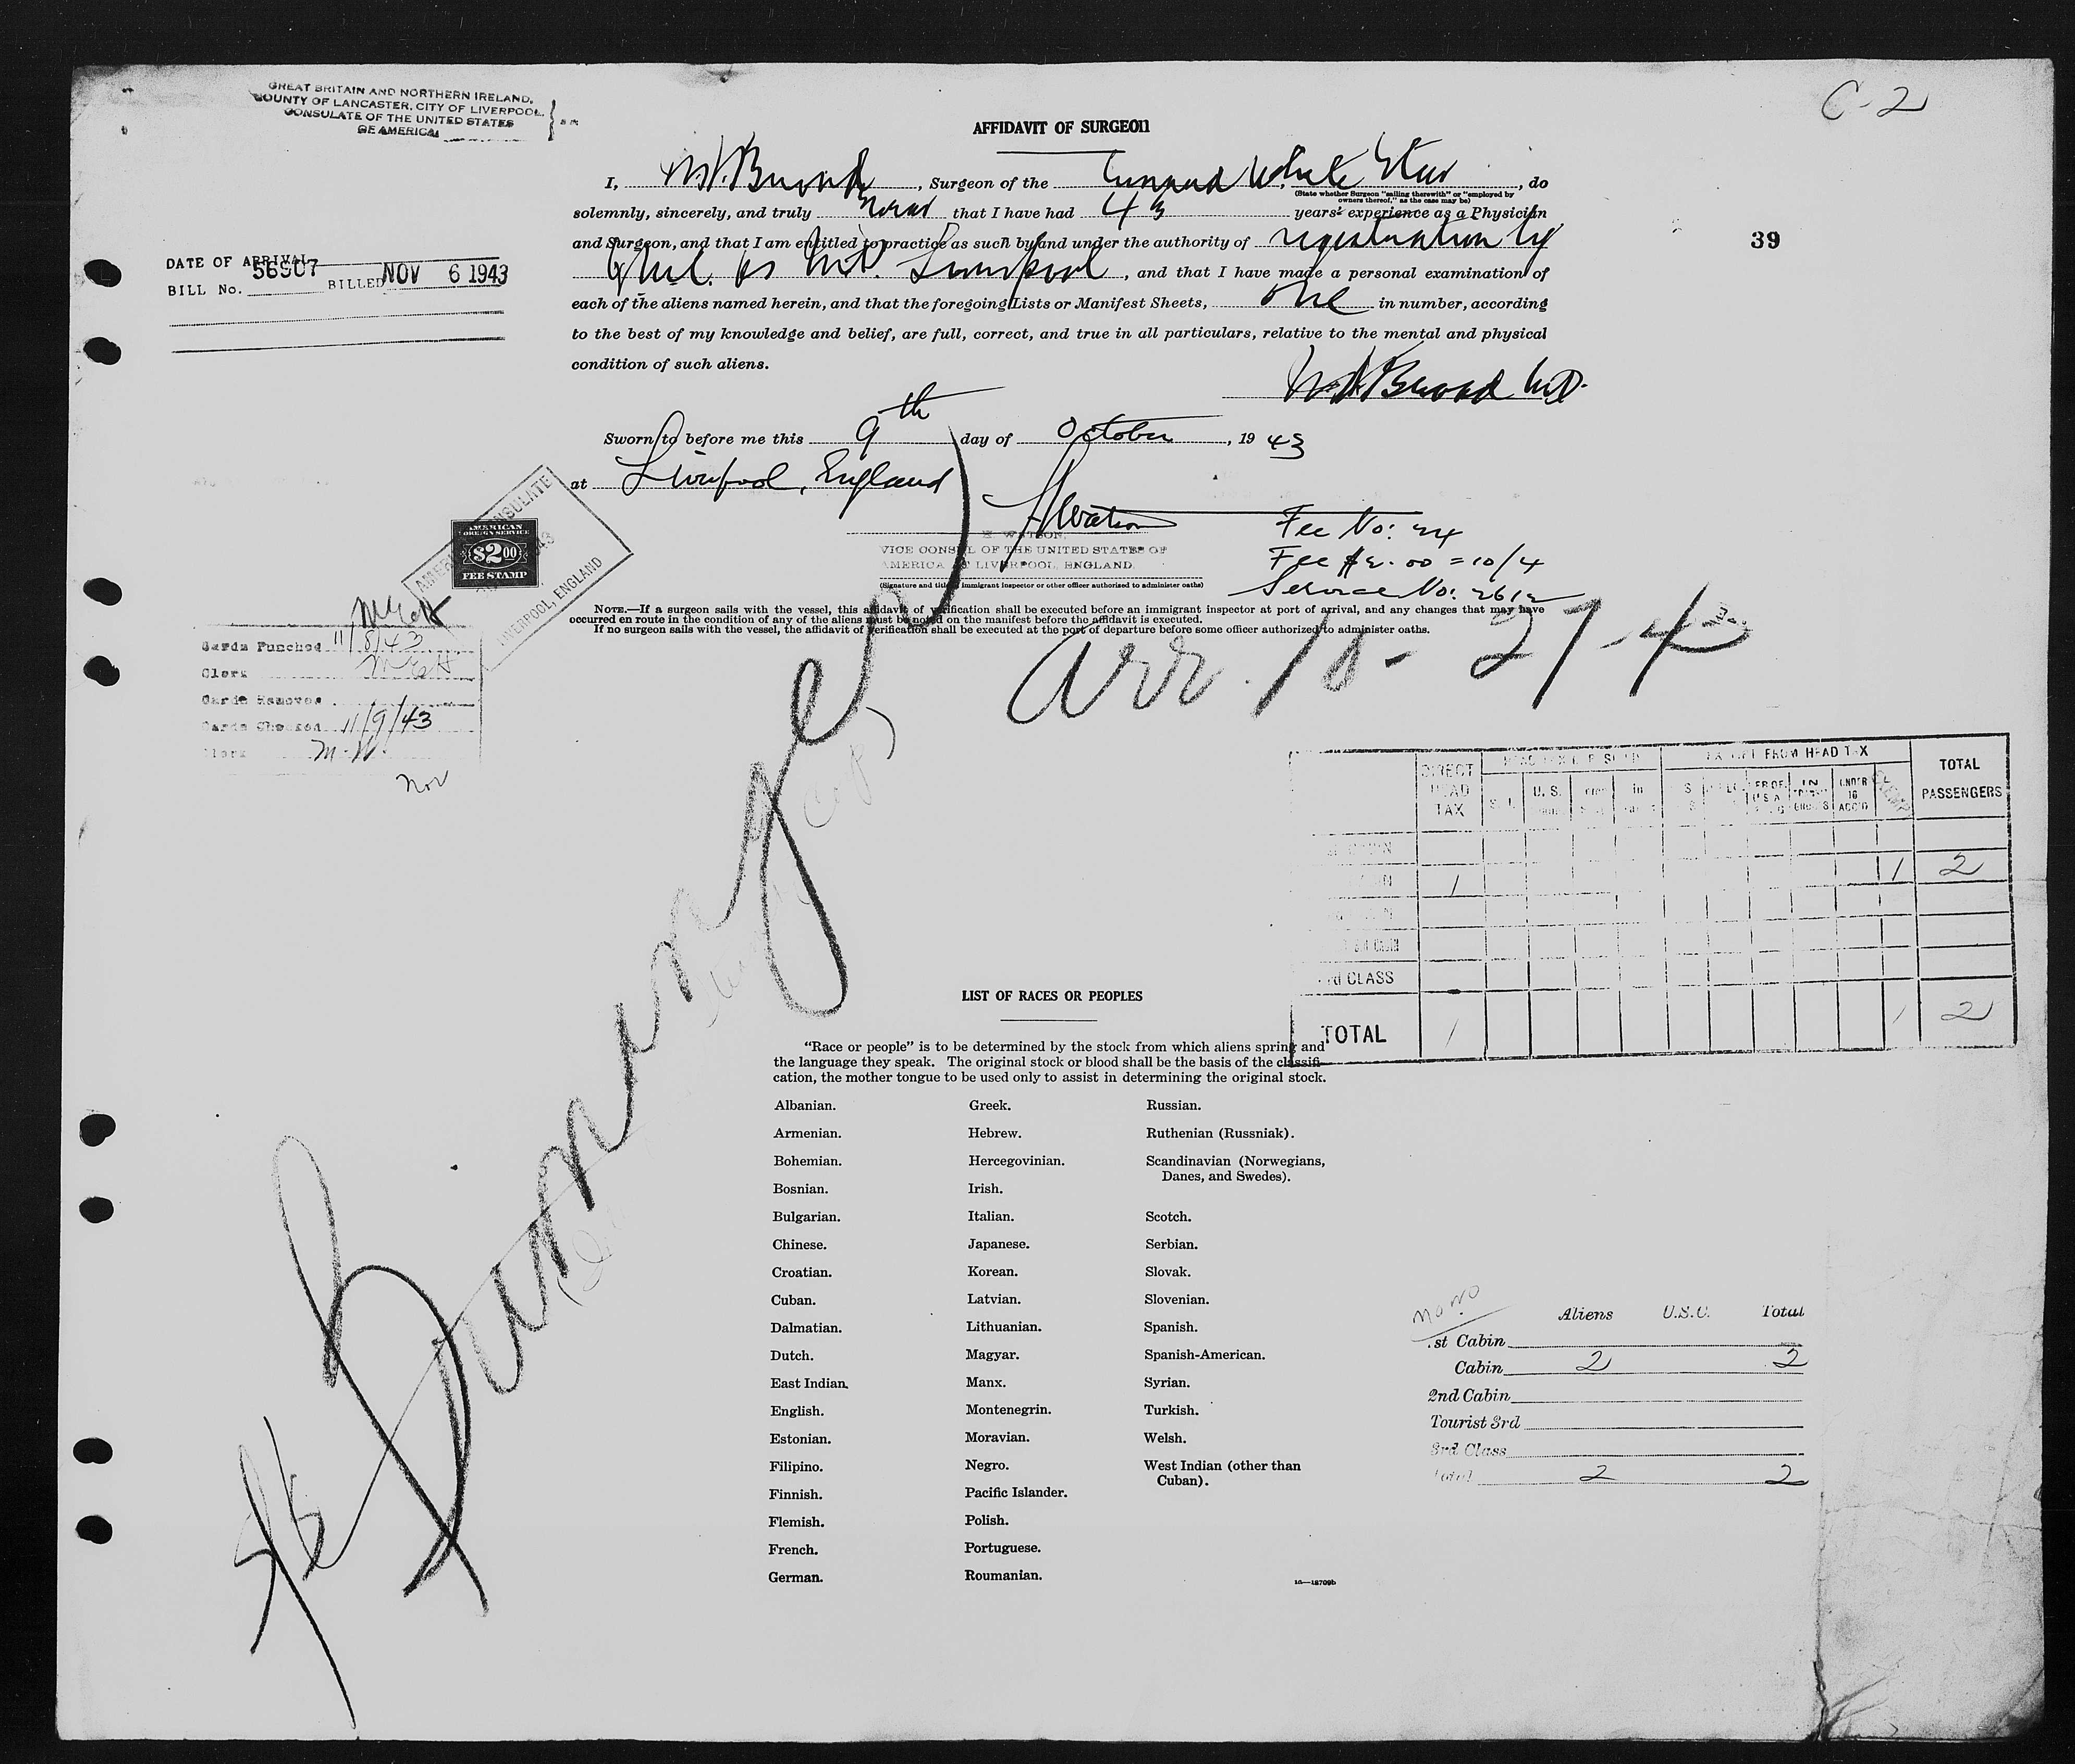 GREAT BRITAIN AND NORTHERN IRELAND,
COUNTY OF LANCASTER, CITY OF LIVERPOOL,
CONSULATE OF THE UNITED STATES
OF AMERICA.
C-2
AFFIDAVIT OF SURGEON
I, , Surgeon of the Cunard White Star , do
(State whether Surgeon "sailing therewith" or "employed by
owners thereof," as the case may be)
solemnly, sincerely, and truly swear that I have had 43 years' experience as a Physician
and Surgeon, and that I am entitled to practice as such by and under the authority of registration by
Liverpool , and that I have made a personal examination of
each of the aliens named herein, and that the foregoing Lists or Manifest Sheets, one in number, according
to the best of my knowledge and belief, are full, correct, and true in all particulars, relative to the mental and physical
condition of such aliens.
39
DATE OF ARRIVAL
BILL No. 56907 BILLED NOV 6 1943
Sworn to before me this 9th day of October , 19 43
at Liverpool, England
H. WATSON,
VICE CONSUL OF THE UNITED STATES OF
AMERICA AT LIVERPOOL, ENGLAND.
(Signature and title, immigrant inspector or other officer authorized to administer oaths)
Fee No: 24
Fee $2.00 = 10/4
Service No: 2612
AMERICAN CONSULATE
LIVERPOOL, ENGLAND
AMERICAN
FOREIGN SERVICE
$2.00
FEE STAMP
NOTE.—If a surgeon sails with the vessel, this affidavit of verification shall be executed before an immigrant inspector at port of arrival, and any changes that may have
occurred en route in the condition of any of the aliens must be noted on the manifest before the affidavit is executed.
If no surgeon sails with the vessel, the affidavit of verification shall be executed at the port of departure before some officer authorized to administer oaths.
Cards Punched 11/8/43
Clerk
Cards Removed
Cards Checked 11/9/43
Clerk M.W.
Nov
Arr. 10-27-43
DIRECT HEAD TAX
EXEMPT FROM HEAD TAX
TOTAL PASSENGERS
U. S.
UNDER 16 ACC'D
1 1 2
3rd CLASS
TOTAL 1 1 2
LIST OF RACES OR PEOPLES
"Race or people" is to be determined by the stock from which aliens spring and
the language they speak. The original stock or blood shall be the basis of the classifi-
cation, the mother tongue to be used only to assist in determining the original stock.
Albanian.
Armenian.
Bohemian.
Bosnian.
Bulgarian.
Chinese.
Croatian.
Cuban.
Dalmatian.
Dutch.
East Indian.
English.
Estonian.
Filipino.
Finnish.
Flemish.
French.
German.
Greek.
Hebrew.
Hercegovinian.
Irish.
Italian.
Japanese.
Korean.
Latvian.
Lithuanian.
Magyar.
Manx.
Montenegrin.
Moravian.
Negro.
Pacific Islander.
Polish.
Portuguese.
Roumanian.
Russian.
Ruthenian (Russniak).
Scandinavian (Norwegians,
Danes, and Swedes).
Scotch.
Serbian.
Slovak.
Slovenian.
Spanish.
Spanish-American.
Syrian.
Turkish.
Welsh.
West Indian (other than
Cuban).
16—18709b
Aliens U.S.C. Total
1st Cabin
Cabin 2 2
2nd Cabin
Tourist 3rd
3rd Class
Total 2 2